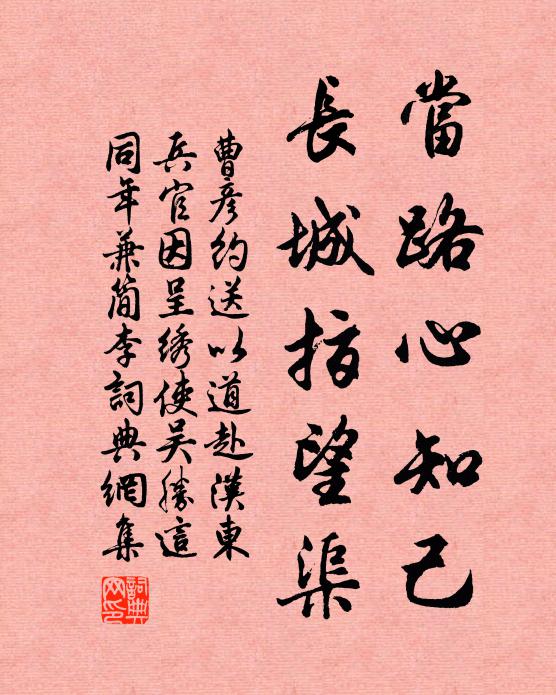 當路心知己
長城指望渠
曹彥約送以道赴漢東
兵官因呈绣使吴勝這
同年兼简李詞典網集
詞典網印